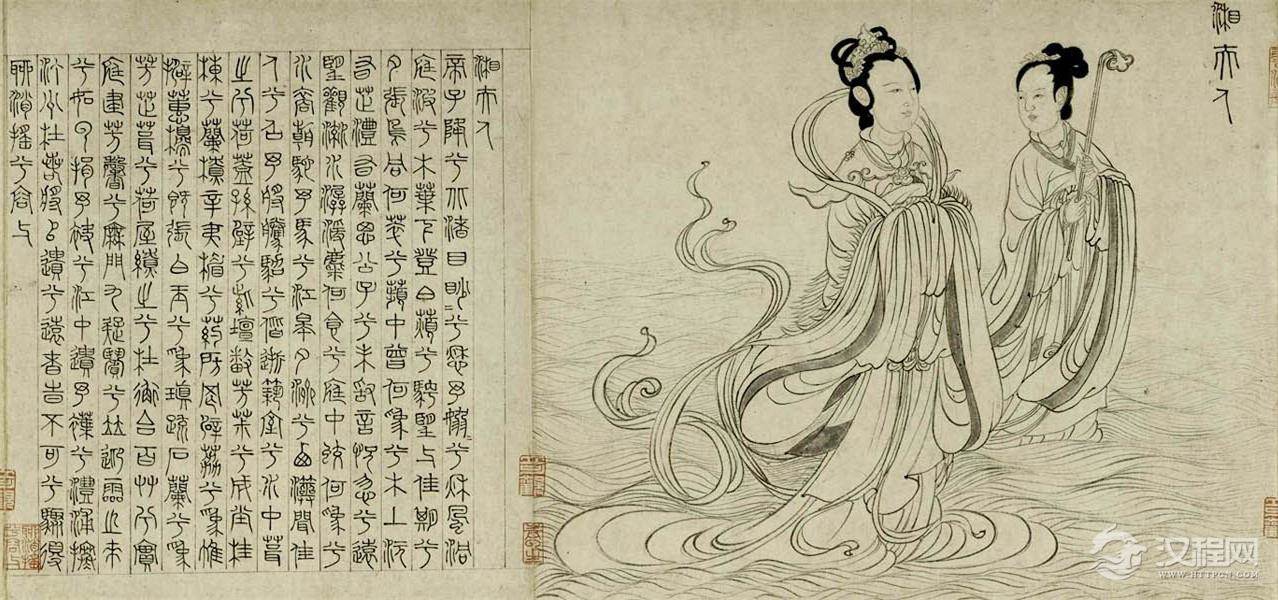 湘夫人
湘夫人
帝子降兮北渚目眇=兮愁予嫋=兮秋風洞
庭波兮木葉下登白薠兮騁望與佳期兮
夕張鳥何萃兮蘋中罾何為兮木上沅
有芷澧有蘭思公子兮未敢言怳忽兮遠
望觀流水潺湲麋何食兮庭中蛟何為兮
水裔朝馳予馬兮江皋夕濟兮西澨聞佳
人兮召予將騰駕兮偕逝築室兮水中葺
之兮荷蓋蓀壁兮紫壇播芳茉兮成堂桂
棟兮蘭橑辛夷楣兮葯房罔薜荔兮為帷
擗蕙櫋兮既張白玉兮為瑱疏石蘭兮為
芳芷葺兮荷屋繚之兮杜衡合百艸兮實
庭建芳馨兮廡門九疑繽兮並迎靈之來
兮如雲捐予袂兮江中遺予褋兮澧浦搴
汀洲杜若將以遺兮遠者時不可兮驟得
聊逍遙兮容與
汉程网
WWW.HTTPCN.COM